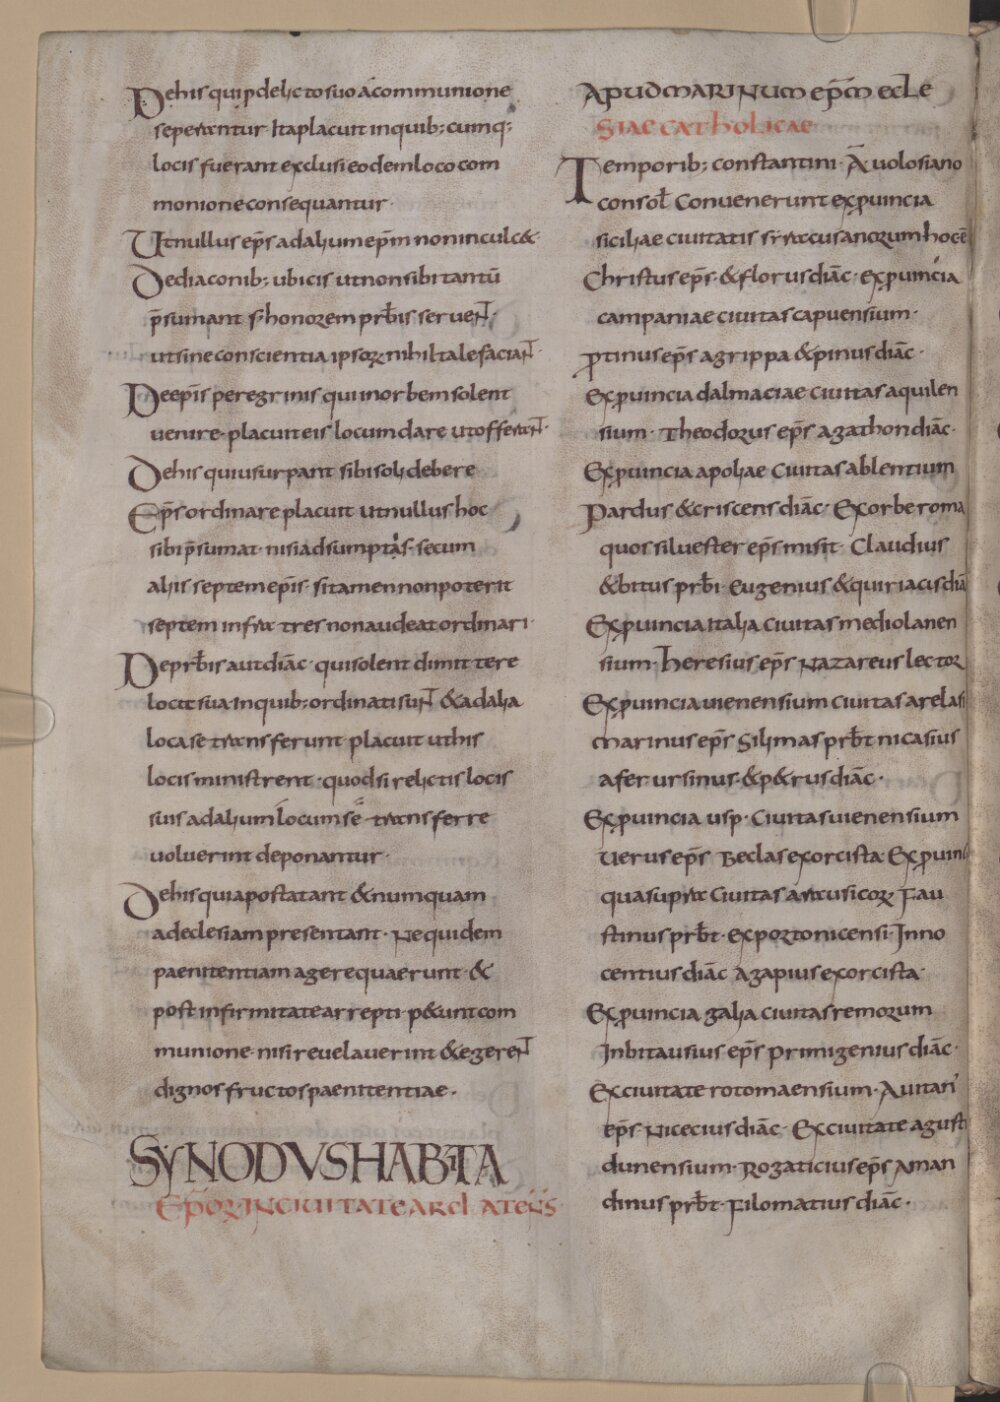 Dehis quip delicto suo a communione
seperantur Ita placuit inquib; cumq;
locis fuerant exclusi eodem loco com
monione consequantur·
Ut nullus ep̄s adalium ep̄m non inculc&·
Dediaconib; ubicis ut non sibi tantū
p̄sumant s; honorem pr̄bis seruen̄t·
ut sine conscientia ipsoꝝ nihil tale facian̄t·
De ep̄is peregrinis qui in orbem solent
uenire· placuit eis locum dare ut offeran̄t·
Dehis qui usurpant sibi soli debere
Ep̄s ordinare placuit ut nullus hoc
sibi p̄sumat· nisi adsumptis· secum
aliis septem ep̄is· si tamen non poterit
septem infra tres non audeat ordinari·
De pr̄bis aut diāc· qui solent dimittere
locete sua Inquib; ordinati sun̄t & adalia
loca se transferunt placuit ut his
locis ministrent· quod si relictis locis
suis adalium locum se transferre
uoluerint deponantur·
Dehis qui apostatant & numquam
adeclesiam presentant· Nequidem
paenitentiam agere quaerunt· &
post infirmitate arrepti· p&unt com
munione· nisi reuelauerint & egeren̄t
dignos fructos paenitentiae·
SYNODVS HABITA
EP̄OꝜ· IN CIUITATE ARELATEN̄S
APUD MARINUM EP̄M ECLE
SIAE CATHOLICAE
Temporib; constantini· Ā uolosiano
consol̄ Conuenerunt ex puincia
siciliae ciuitatis syracusanorum hoc ē
Christus ep̄s· & florus diāc· ex puincia
campaniae ciuitas capuensium·
protinus ep̄s agrippa & pinus diāc·
Ex puincia dalmaciae ciuitas aquilen
sium· Theodorus ep̄s agathon diāc·
Ex puincia apoliae Ciuitas ablentium
Pardus & criscens diāc· Ex orbe roma
quos siluester ep̄s misit· Claudius
& bitus pr̄bi· Eugenius & quiriacis diā
Ex puincia italia Ciuitas mediolanen
sium· heresius ep̄s Nazareus lector
Ex puincia uienensium Ciuitas arelasi
Marinus ep̄s Silimas pr̄bt nicasius
afer ursinus· & p&rus diāc·
Ex puincia usp· Ciuitas uienensium
Uerus ep̄s Beclas exorcista· Ex puin
qua supra Ciuitas arausicoꝝ· Fau
stinus pr̄bt· ex porto nicensi· Inno
centius diāc Agapius exorcista·
Ex puincia galia Ciuitas remorum
Inbitausius ep̄s primigenius diāc·
Ex ciuitate rotomaensium· Auitan'
ep̄s Nicecius diāc· Ex ciuitate agust
dunensium· Rogaticius ep̄s Aman
dinus pr̄bt· Filomatius diāc·